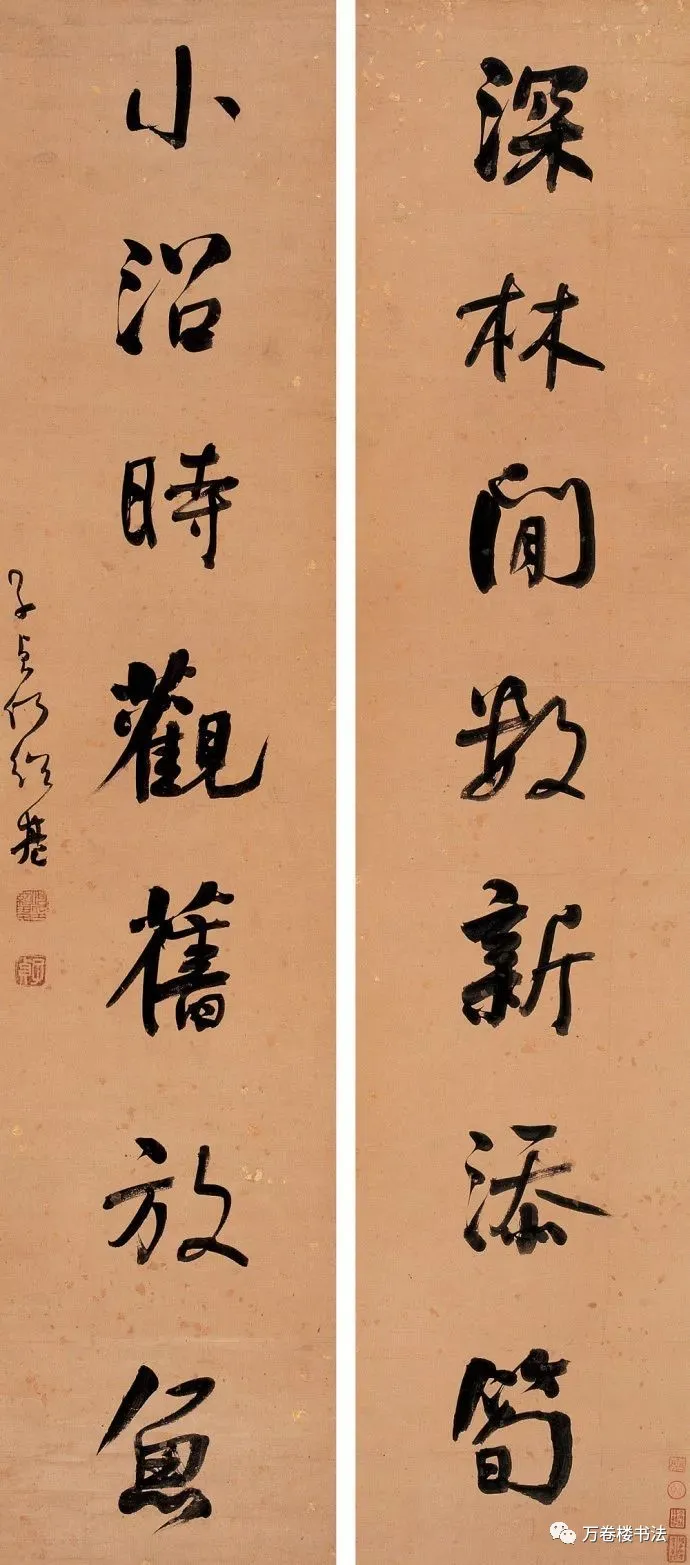 深林閒數新添筍
小沼時觀舊放魚
子貞何紹基
万卷楼书法